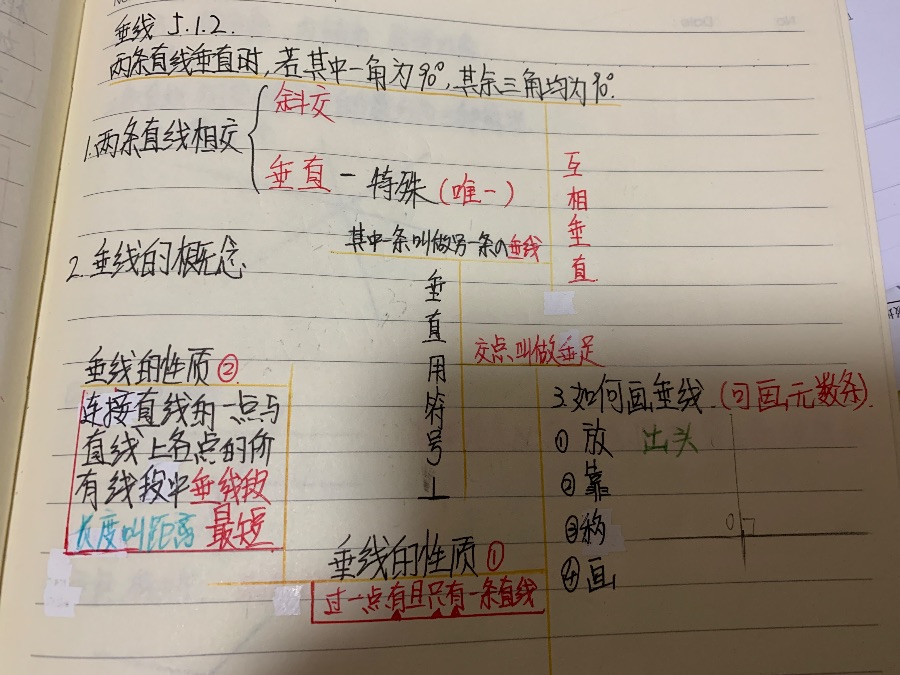 垂线 5.1.2.
两条直线垂直时,若其中一角为90°,其余三角均为90°.
1.两条直线相交
斜交
垂直－特殊(唯一)
互相垂直
2.垂线的概念
其中一条叫做另一条的垂线
垂直用符号⊥
交点叫做垂足
垂线的性质②
连接直线的一点与
直线上各点的所
有线段中垂线段
长度叫距离 最短
3.如何画垂线.(可画无数条)
①放 出头
②靠
③移
④画
O
垂线的性质①
过一点有且只有一条直线